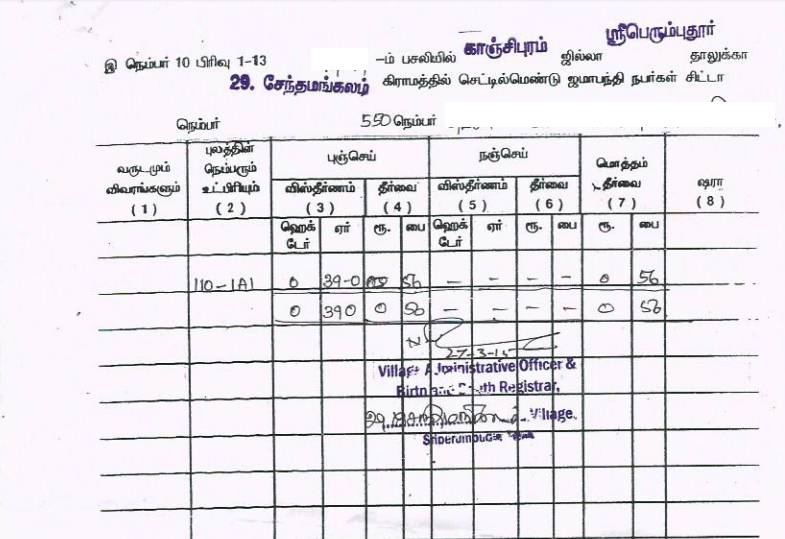 ஸ்ரீபெரும்புதூர்
இ நெம்பர் 10 பிரிவு 1-13 –ம் பசலியில் காஞ்சிபுரம் ஜில்லா தாலுக்கா
29. சேந்தமங்கலம் கிராமத்தில் செட்டில்மெண்டு ஜமாபந்தி நபர்கள் சிட்டா
நெம்பர் 550 நெம்பர்
வருடமும் விவரங்களும் (1) புலத்தின் நெம்பரும் உட்பிரியும் (2) புஞ்செய் நஞ்செய் மொத்தம் தீர்வை (7) ஷரா (8)
விஸ்தீர்ணம் (3) தீர்வை (4) விஸ்தீர்ணம் (5) தீர்வை (6)
ஹெக்டேர் ஏர் ரூ. பை ஹெக்டேர் ஏர் ரூ. பை ரூ. பை
110-1A1 0 39-0 56 – – – – 0 56
0 390 0 56 – – – – 0 56
27-3-15
Village Administrative Officer &
Birth and Death Registrar,
Village,
Sriperumbudur